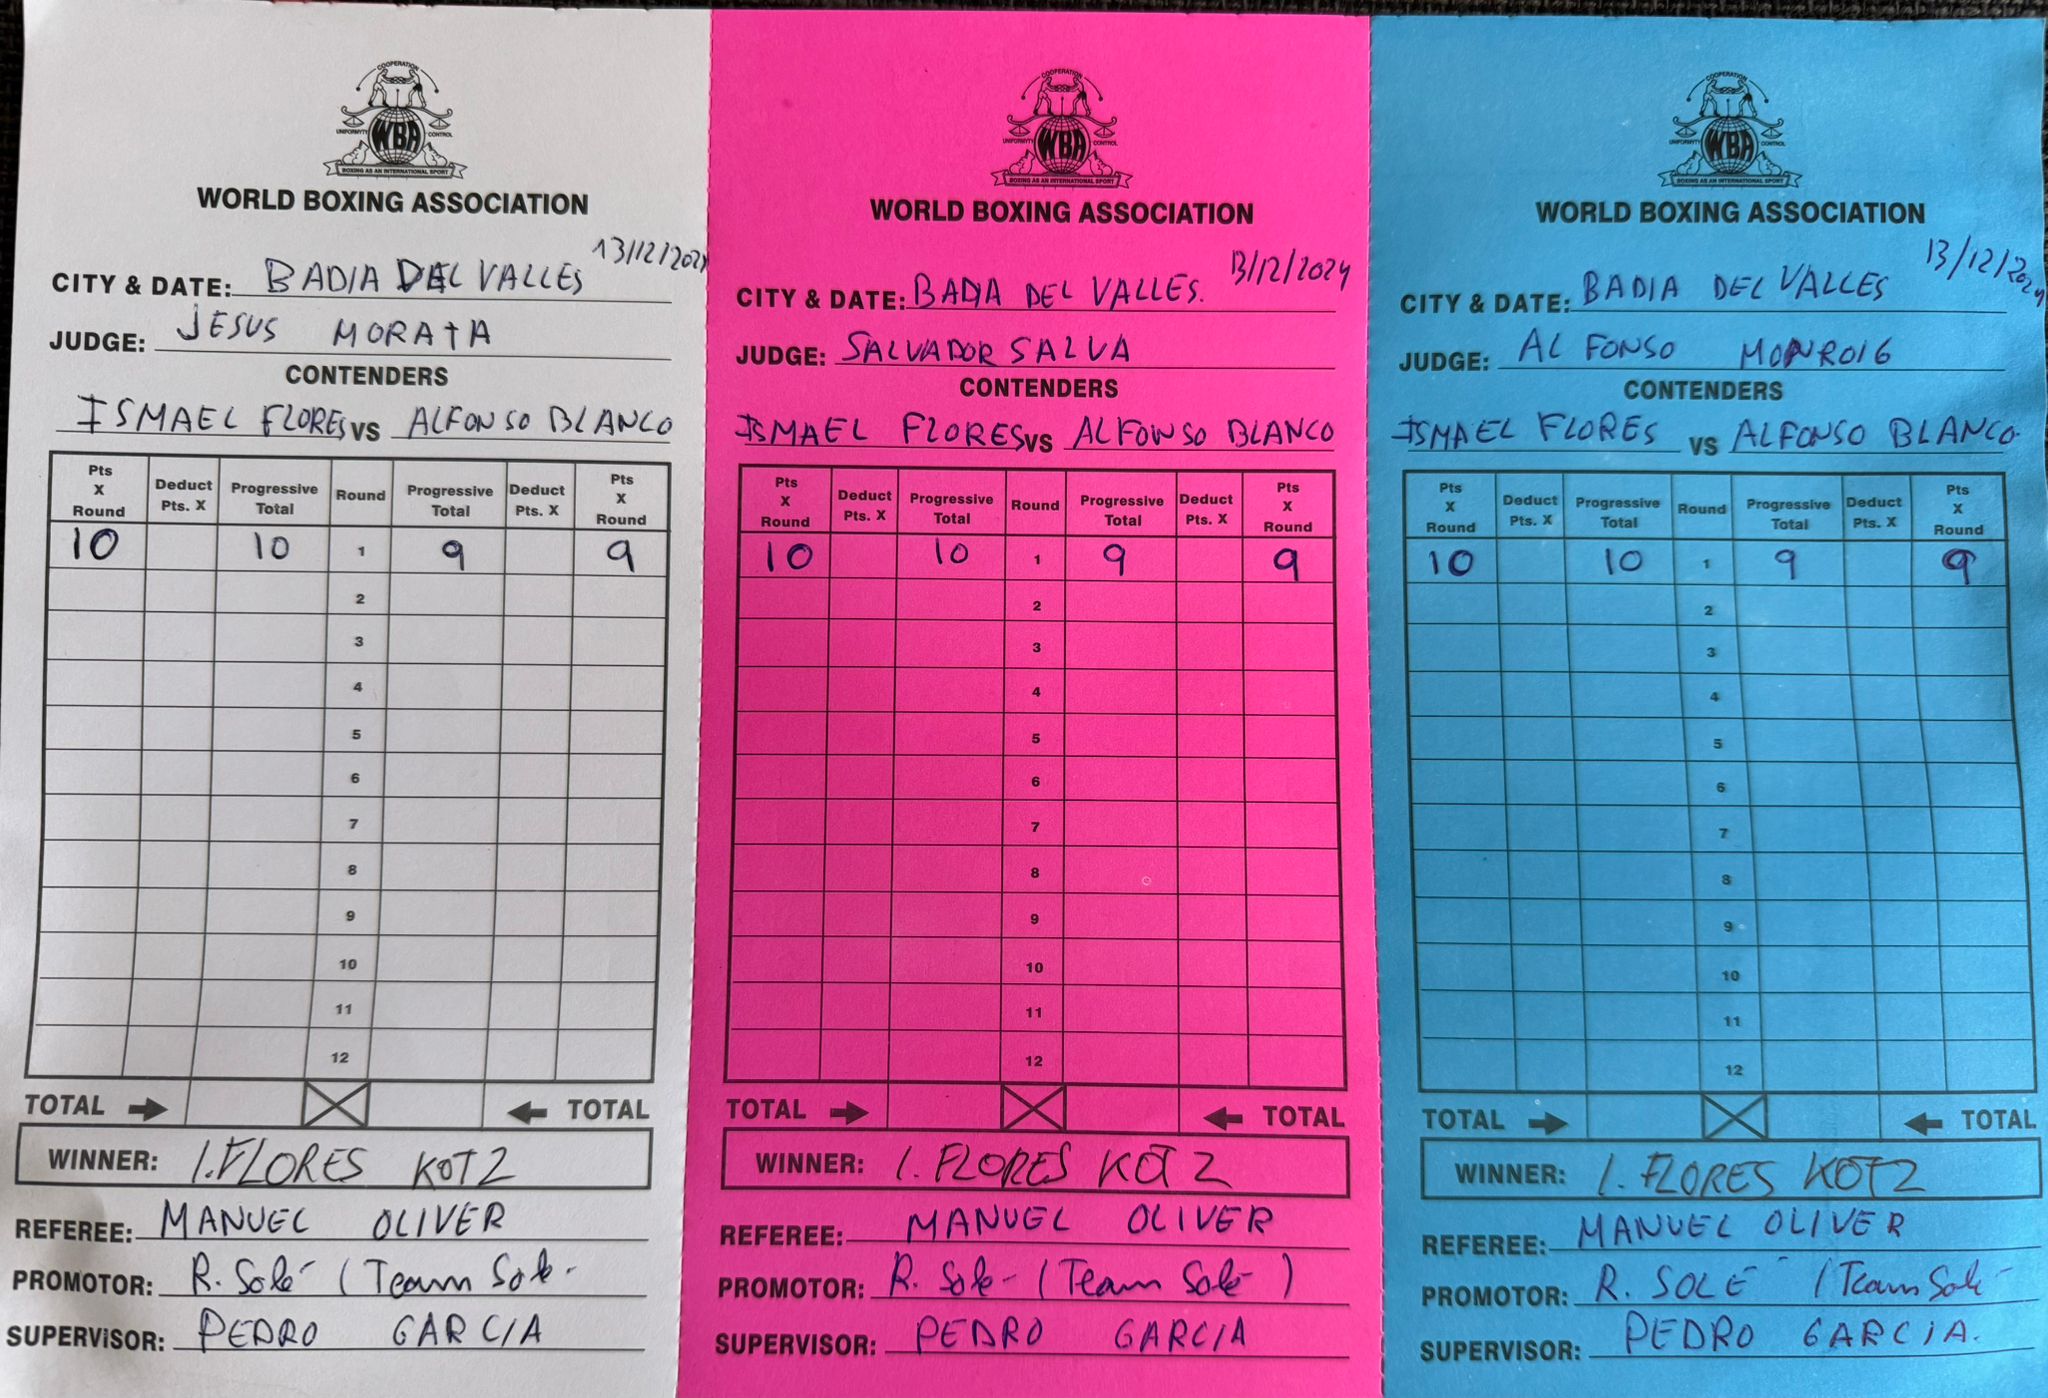 COOPERATION
UNIFORMYTY CONTROL
WBA
BOXING AS AN INTERNATIONAL SPORT
WORLD BOXING ASSOCIATION
13/12/2024
CITY & DATE: BADIA DEL VALLES
JUDGE: JESUS MORATA
CONTENDERS
ISMAEL FLORES VS ALFONSO BLANCO
Pts X Round Deduct Pts. X Progressive Total Round Progressive Total Deduct Pts. X Pts X Round
10 10 1 9 9
2
3
4
5
6
7
8
9
10
11
12
TOTAL TOTAL
WINNER: I. FLORES KOT 2
REFEREE: MANUEL OLIVER
PROMOTOR: R. Solé (Team Solé
SUPERVISOR: PEDRO GARCIA
COOPERATION
UNIFORMYTY CONTROL
WBA
BOXING AS AN INTERNATIONAL SPORT
WORLD BOXING ASSOCIATION
13/12/2024
CITY & DATE: BADIA DEL VALLES.
JUDGE: SALVADOR SALVA
CONTENDERS
ISMAEL FLORES VS ALFONSO BLANCO
Pts X Round Deduct Pts. X Progressive Total Round Progressive Total Deduct Pts. X Pts X Round
10 10 1 9 9
2
3
4
5
6
7
8
9
10
11
12
TOTAL TOTAL
WINNER: I. FLORES KOT 2
REFEREE: MANUEL OLIVER
PROMOTOR: R. Solé (Team Solé)
SUPERVISOR: PEDRO GARCIA
COOPERATION
UNIFORMYTY CONTROL
WBA
BOXING AS AN INTERNATIONAL SPORT
WORLD BOXING ASSOCIATION
13/12/2024
CITY & DATE: BADIA DEL VALLES
JUDGE: ALFONSO MONROIG
CONTENDERS
ISMAEL FLORES VS ALFONSO BLANCO
Pts X Round Deduct Pts. X Progressive Total Round Progressive Total Deduct Pts. X Pts X Round
10 10 1 9 9
2
3
4
5
6
7
8
9
10
11
12
TOTAL TOTAL
WINNER: I. FLORES KOT 2
REFEREE: MANUEL OLIVER
PROMOTOR: R. SOLÉ (Team Solé
SUPERVISOR: PEDRO GARCIA.